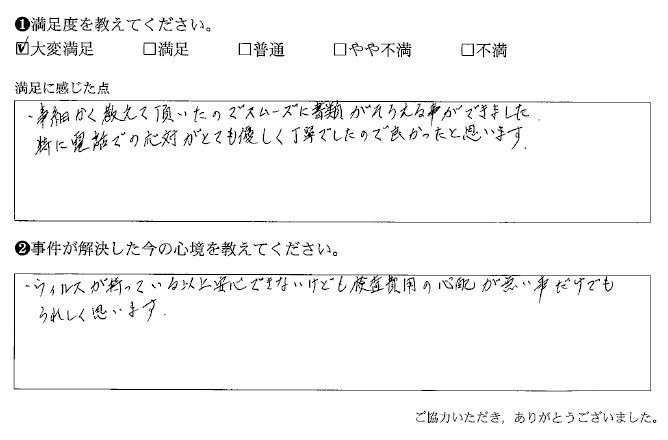 ❶満足度を教えてください。
☑大変満足 □満足 □普通 □やや不満 □不満
満足に感じた点
・事細かく教えて頂いたのでスムーズに書類がそろえる事ができました.
特に電話での応対がとても優しく丁寧でしたので良かったと思います.
❷事件が解決した今の心境を教えてください。
・ウィルスが持っている以上安心できないけども検査費用の心配が無い事だけでも
うれしく思います.
ご協力いただき，ありがとうございました。